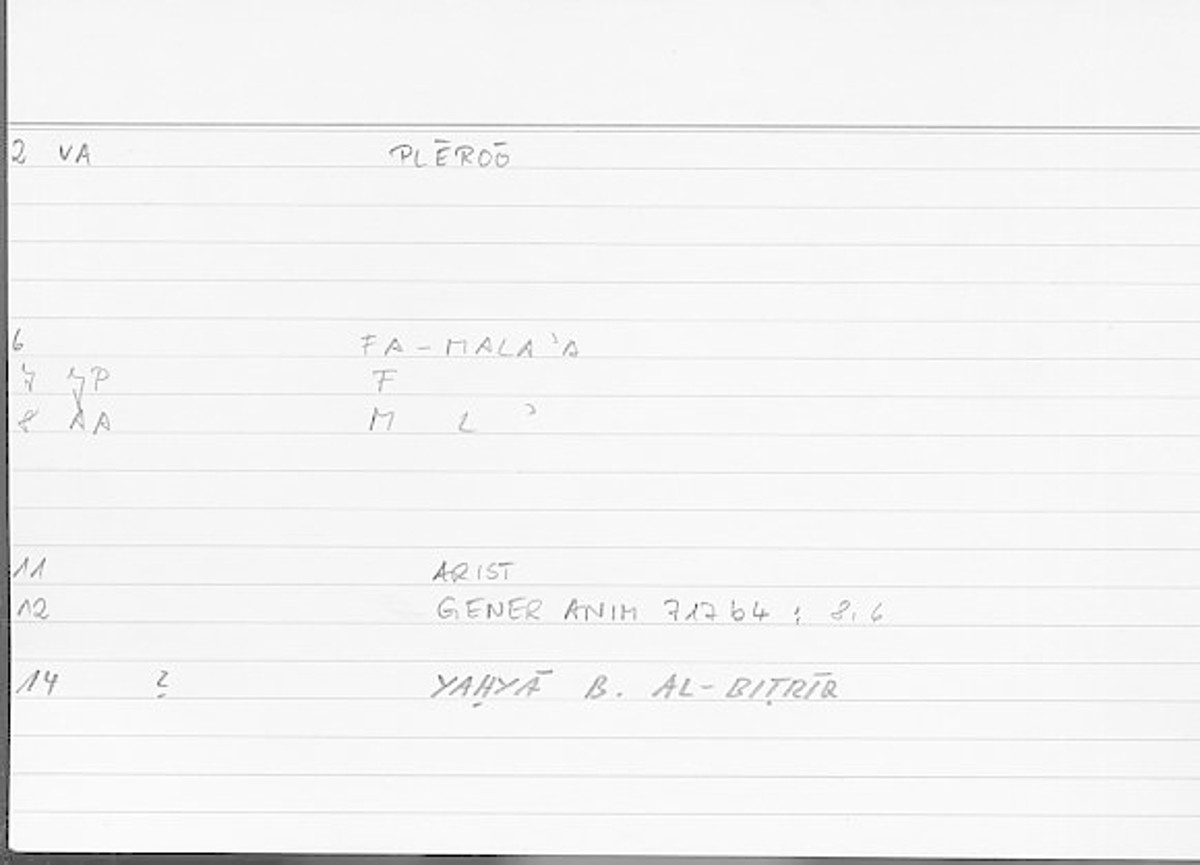 2 VA PLĒROŌ
6 FA-MALAʾA
7 P F
8 A M L ʾ
11 ARIST
12 GENER ANIM 717b4 ; 8,6
14 ? YAḤYĀ B. AL-BIṬRĪR